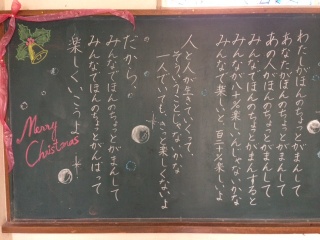 わたしがほんのちょっとがまんして
あなたがほんのちょっとがまんして
あの人がほんのちょっとがまんして
みんなでほんのちょっとがまんすると
みんなが八十%楽しいんじゃないかな
みんなで楽しいと、百二十%楽しいよ
人と人が生きていくって、
そういうことじゃないかな
一人でいても、きっと楽しくないよ
だから、
みんなでほんのちょっとがまんして
みんなでほんのちょっとがんばって
楽しくいこうよ
Merry
Christmas